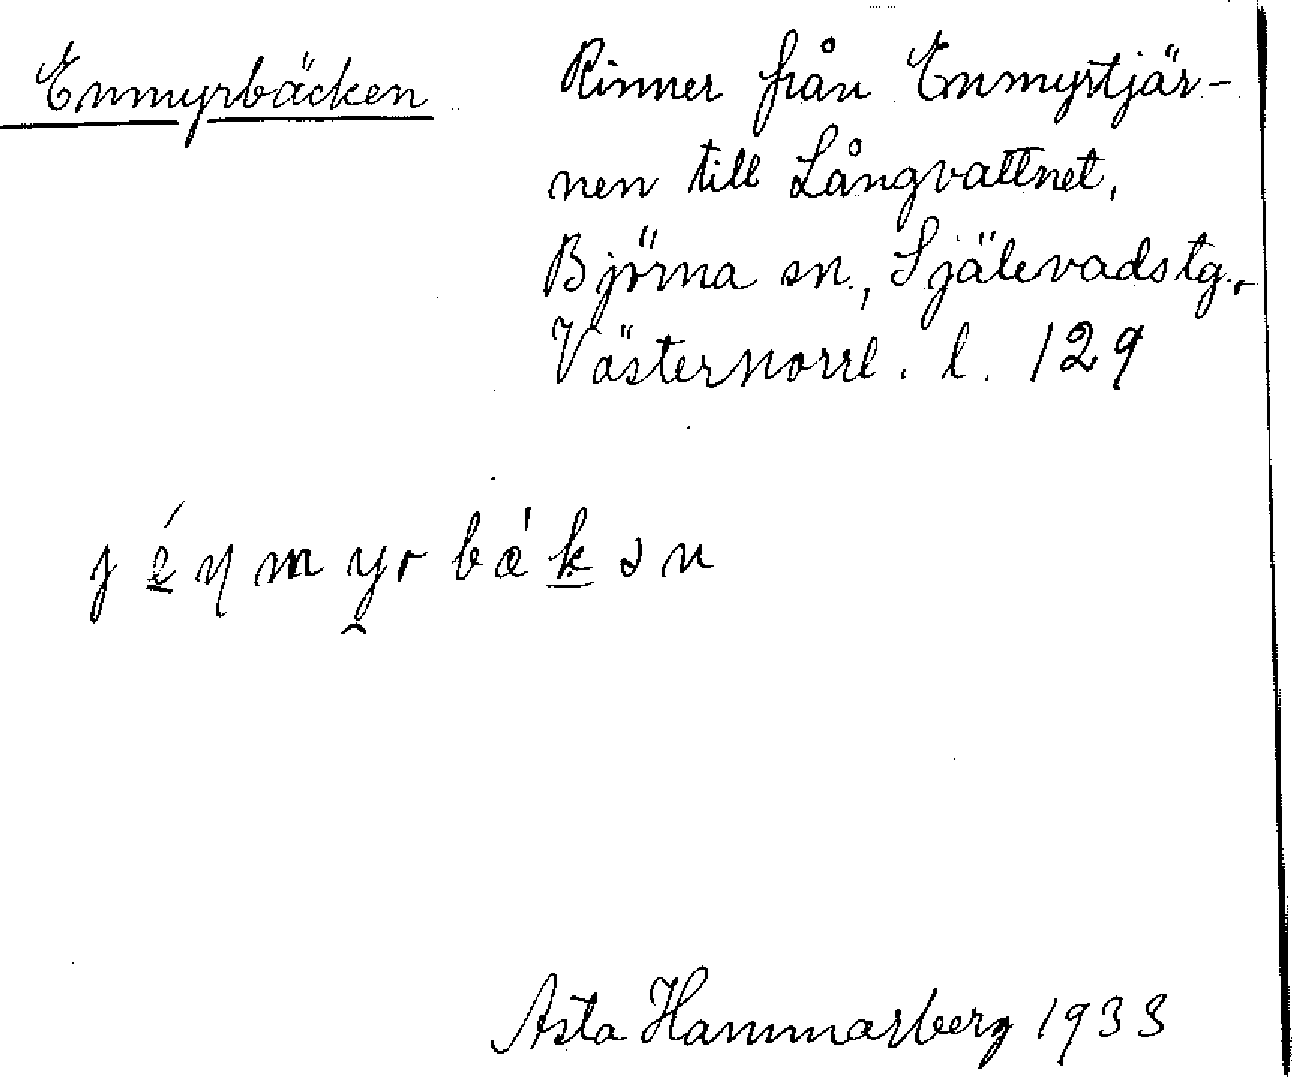 Enmyrbäcken
Rinner från Enmyrtjär-
nen till Långvattnet,
Björna sn., Själevadstg.
Västernorrl. l. 129
Asta Hammarberg 1933